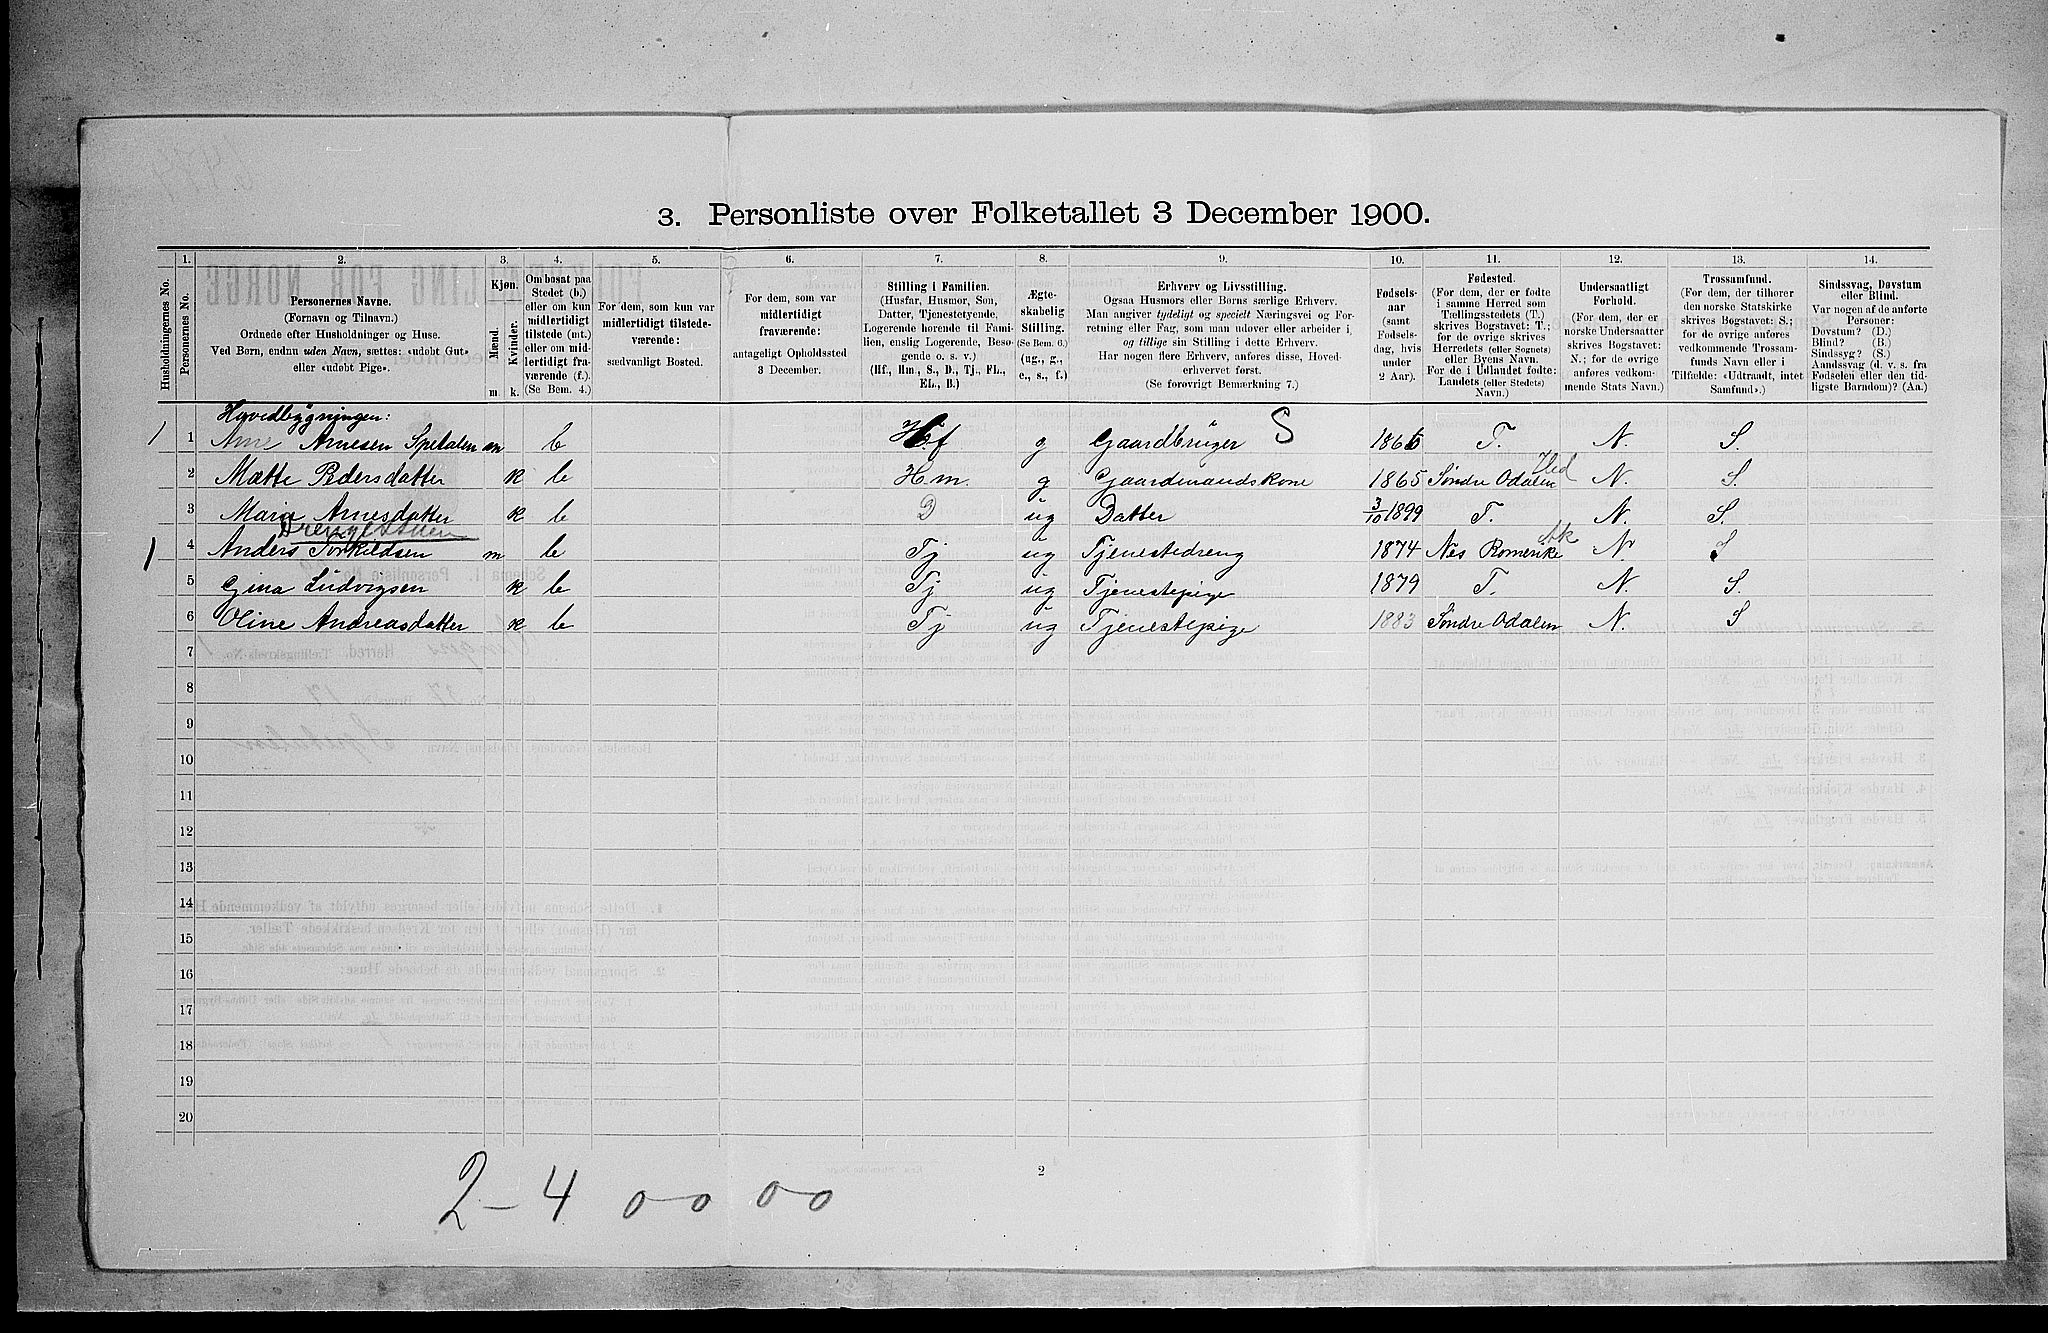 3. Personliste over Folketallet 3 December 1900.
Husholdningernes No.
1.
Personernes No.
2.
Personernes Navne.
(Fornavn og Tilnavn.)
Ordnede efter Husholdninger og Huse.
Ved Børn, endnu uden Navn, sættes: «udøbt Gut»
eller «udøbt Pige».
3.
Kjøn.
Mænd.
Kvinder.
m. k.
4.
Om bosat paa
Stedet (b.)
eller om kun
midlertidigt
tilstede (mt.)
eller om mid-
lertidigt fra-
værende (f.).
(Se Bem. 4.)
5.
For dem, som kun var
midlertidigt tilstede-
værende:
sædvanligt Bosted.
6.
For dem, som var
midlertidigt
fraværende:
antageligt Opholdssted
3 December.
7.
Stilling i Familien.
(Husfar, Husmor, Søn,
Datter, Tjenestetyende,
Logerende hørende til Fami-
lien, enslig Logerende, Besø-
gende o. s. v.)
(Hf., Hm., S., D., Tj., FL.,
EL., B.)
8.
Ægte-
skabelig
Stilling.
(Se Bem. 6.)
(ug., g.,
e., s., f.)
9.
Erhverv og Livsstilling.
Ogsaa Husmors eller Børns særlige Erhverv.
Man angiver tydeligt og specielt Næringsvei og For-
retning eller Fag, som man udøver eller arbeider i,
og tillige sin Stilling i dette Erhverv.
Har nogen flere Erhverv, anføres disse, Hoved-
erhvervet først.
(Se forøvrigt Bemærkning 7.)
10.
Fødsels-
aar
(samt
Fødsels-
dag, hvis
under
2 Aar).
11.
Fødested.
(For dem, der er fødte
i samme Herred som
Tællingsstedets (T.)
skrives Bogstavet: T.;
for de øvrige skrives
Herredets (eller Sognets)
eller Byens Navn.
For de i Udlandet fødte:
Landets (eller Stedets)
Navn.)
12.
Undersaatligt
Forhold.
(For dem, der er
norske Undersaatter
skrives Bogstavet:
N.; for de øvrige
anføres vedkom-
mende Stats Navn.)
13.
Trossamfund.
(For dem, der tilhører
den norske Statskirke
skrives Bogstavet: S.;
for de øvrige anføres
vedkommende Trossam-
funds Navn eller i
Tilfælde: «Udtraadt, intet
Samfund».)
14.
Sindssvag, Døvstum
eller Blind.
Var nogen af de anførte
Personer:
Døvstum? (D.)
Blind? (B.)
Sindssyg? (S.)
Aandssvag (d. v. s. fra
Fødselen eller den tid-
ligste Barndom)? (Aa.)
Hovedbygningen:
1 1 Arne Arnesen Spetalen m b Hf g Gaardbruger S 1866 T. N. S.
2 Mætte Pedersdatter k b Hm. g Gaardmandskone 1865 Søndre Odalen Hed N. S
3 Maria Arnesdatter k b D ug Datter 3/10 1899 T. N. S.
Drengestuen
1 4 Anders Torkildsen m b Tj ug Tjenestedreng 1874 Nes Romerike Ak N. S
5 Gina Ludvigsen k b Tj ug Tjenestepige 1879 T. N. S.
6 Oline Andreasdatter k b Tj ug Tjenestepige 1883 Søndre Odalen N. S
7
8
9
10
11
12
13
14
15
16
17
18
19
20
2
2 – 4 0–0 0–0